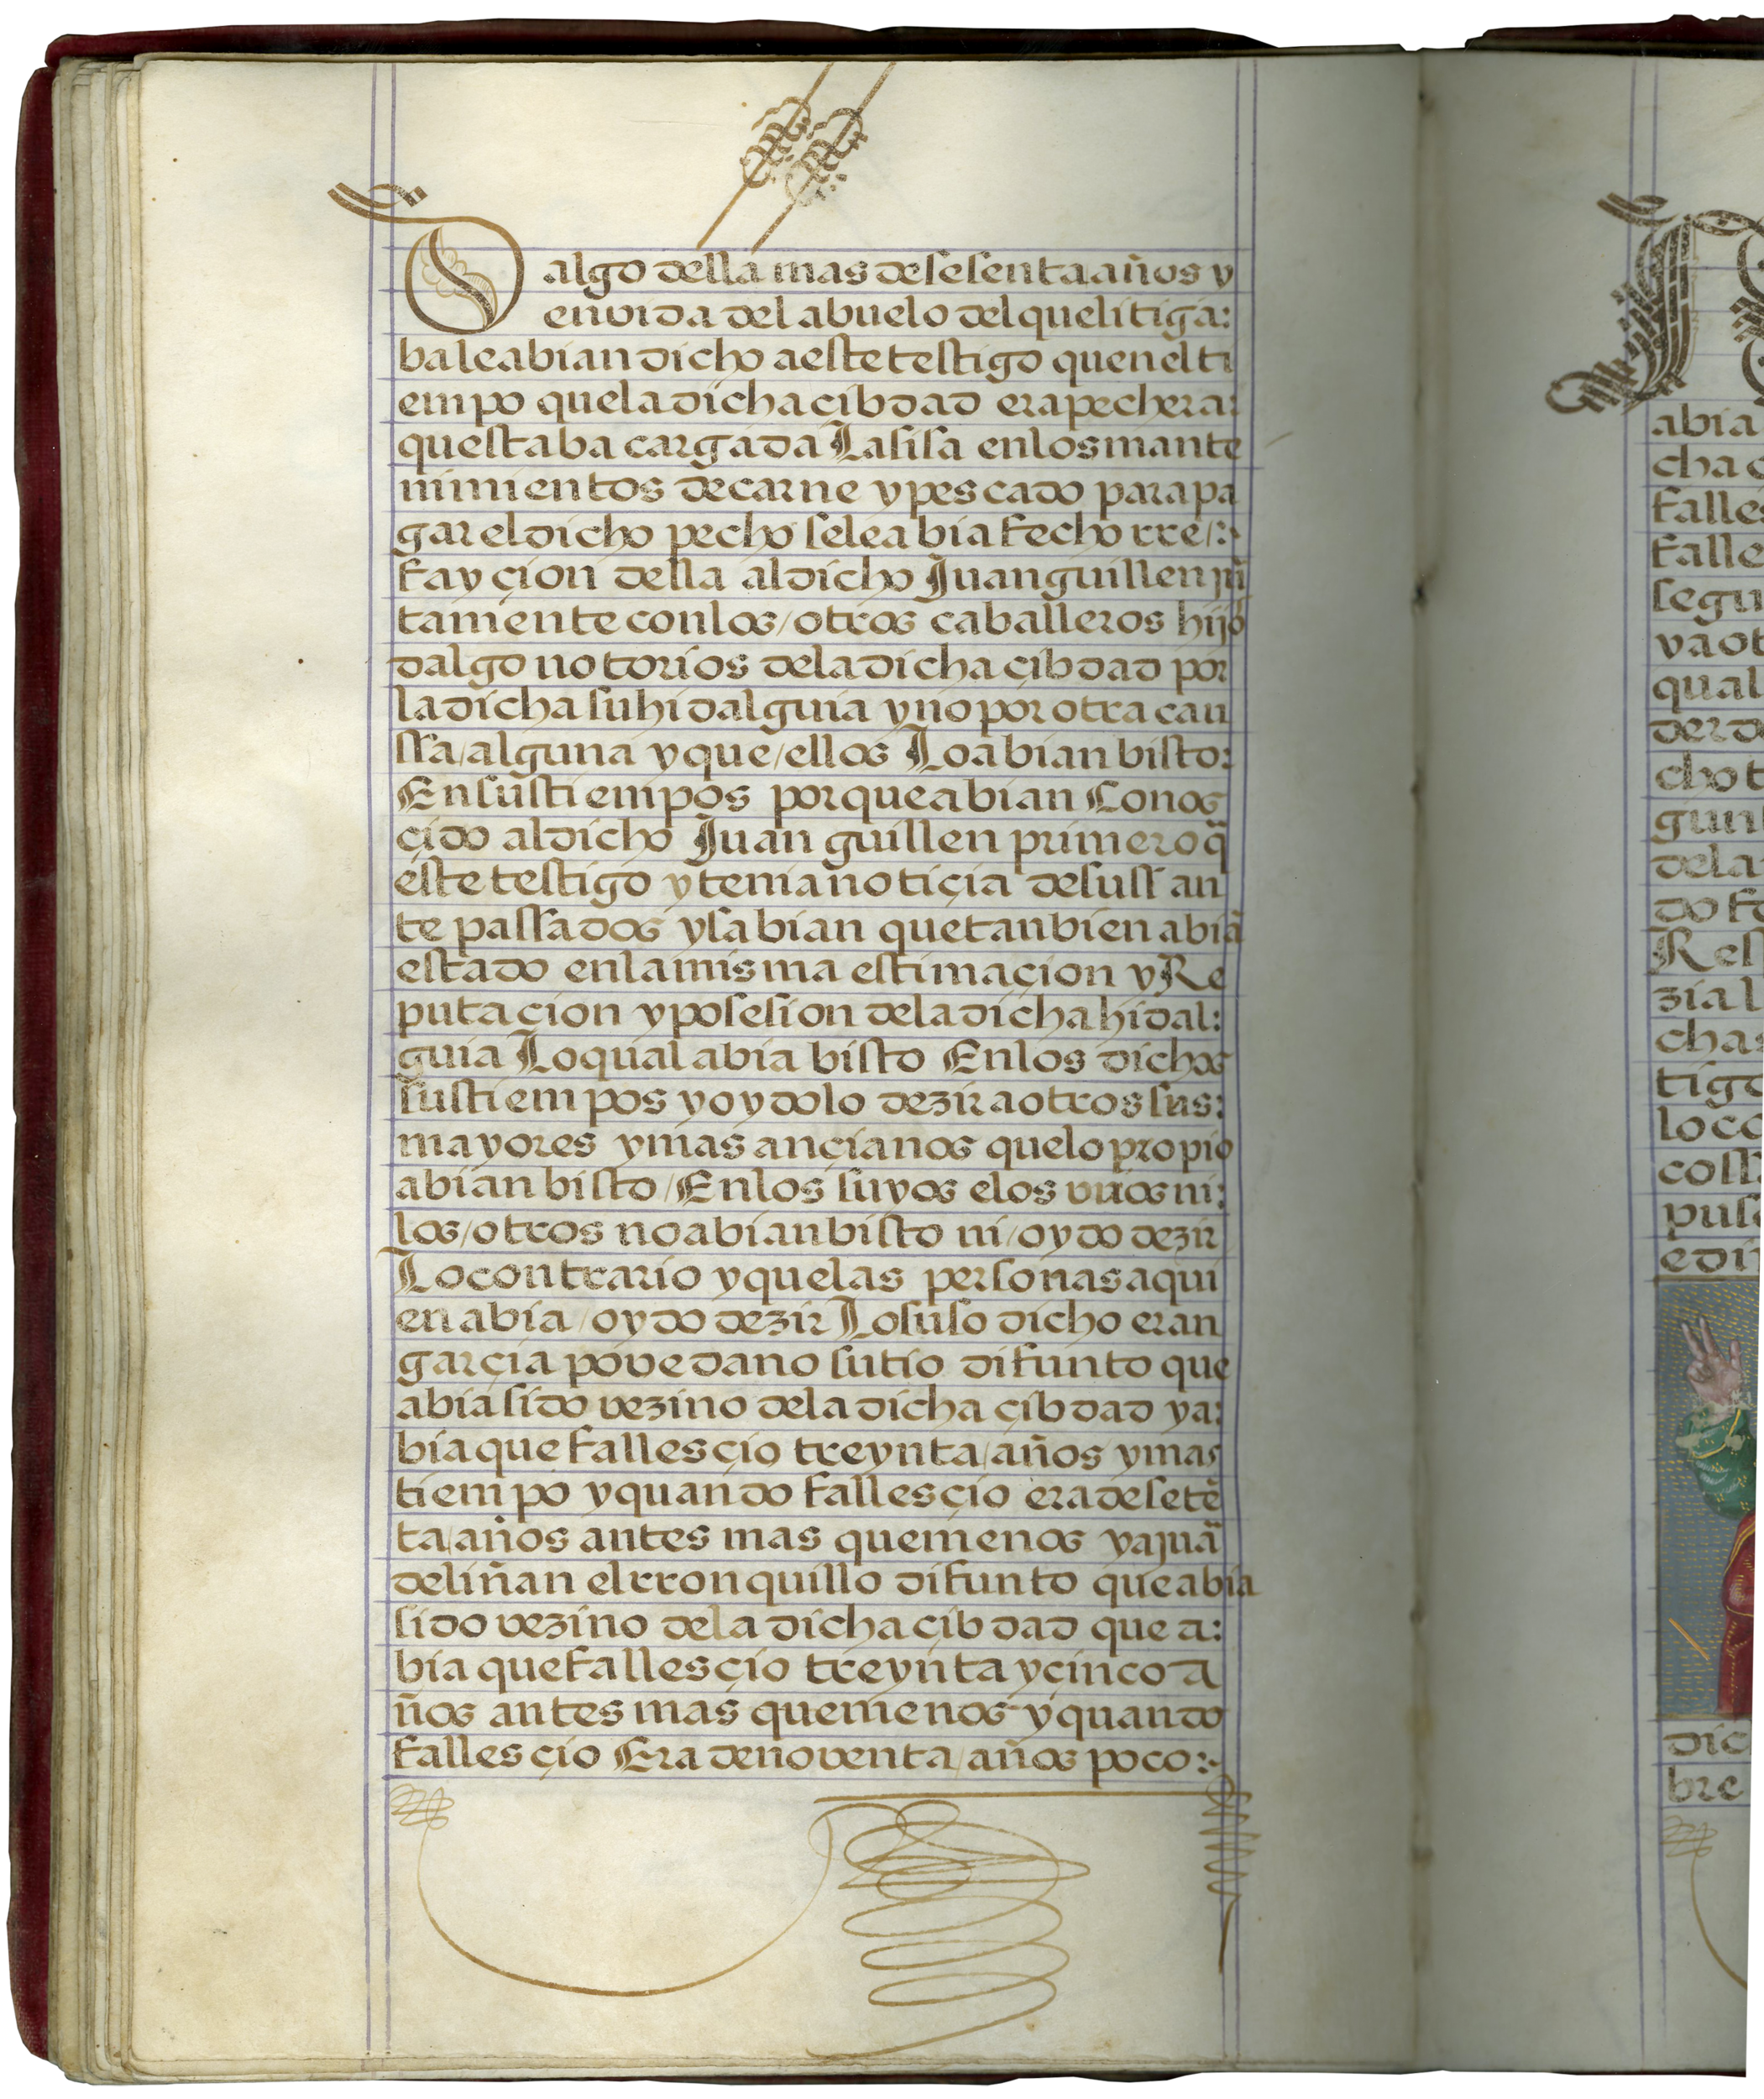 Dalgo della mas de sesenta años y
en vida del abuelo del que litiga:
ba le abian dicho a este testigo quen el ti
empo que la dicha çibdad era pechera:
questaba cargada La sisa en los mante
nimientos de carne y pescado para pa
gar el dicho pecho se le abia fecho rre/:
fayçion della al dicho Juan guillen jũ
tamente con los/otros caballeros hijo
dalgo notorios de la dicha çibdad por
la dicha su hidalguia y no por otra cau
ssa/alguna y que/ellos Lo abian bisto:
En sus tiempos porque abian Conos
çido al dicho Juan guillen primero q̃
este testigo y tenia notiçia de suss an
te passados y sabian que tanbien abiã
estado en la misma estimaçion y Re
putaçion y posesion de la dicha hidal:
guia Lo qual abia bisto En los dichos
sus tiempos y oydolo dezir a otros sus:
mayores y mas ançianos que lo propio
abian bisto/En los suyos e los vnos ni:
los/otros no abian bisto ni/oydo dezir
Lo contrario y que las personas a qui
en abia/oydo dezir Lo suso dicho eran
garçia povedano su tio difunto que
abia sido vezino de la dicha çibdad y a:
bia que fallesçio treynta/años y mas
tiempo y quando fallesçio era de setẽ
ta/años antes mas que menos y a juã
de liñan el rronquillo difunto que abia
sido vezino de la dicha çibdad que a:
bia que fallesçio treynta y cinco a
ños antes mas que menos y quando
fallesçio Era de noventa/años poco:-
abia
cha
falle
segu
y a ot
qual
der d
cho t
gun
dela
do fe
Res
zia l
cha
tigo
pus
edi
dic
bre